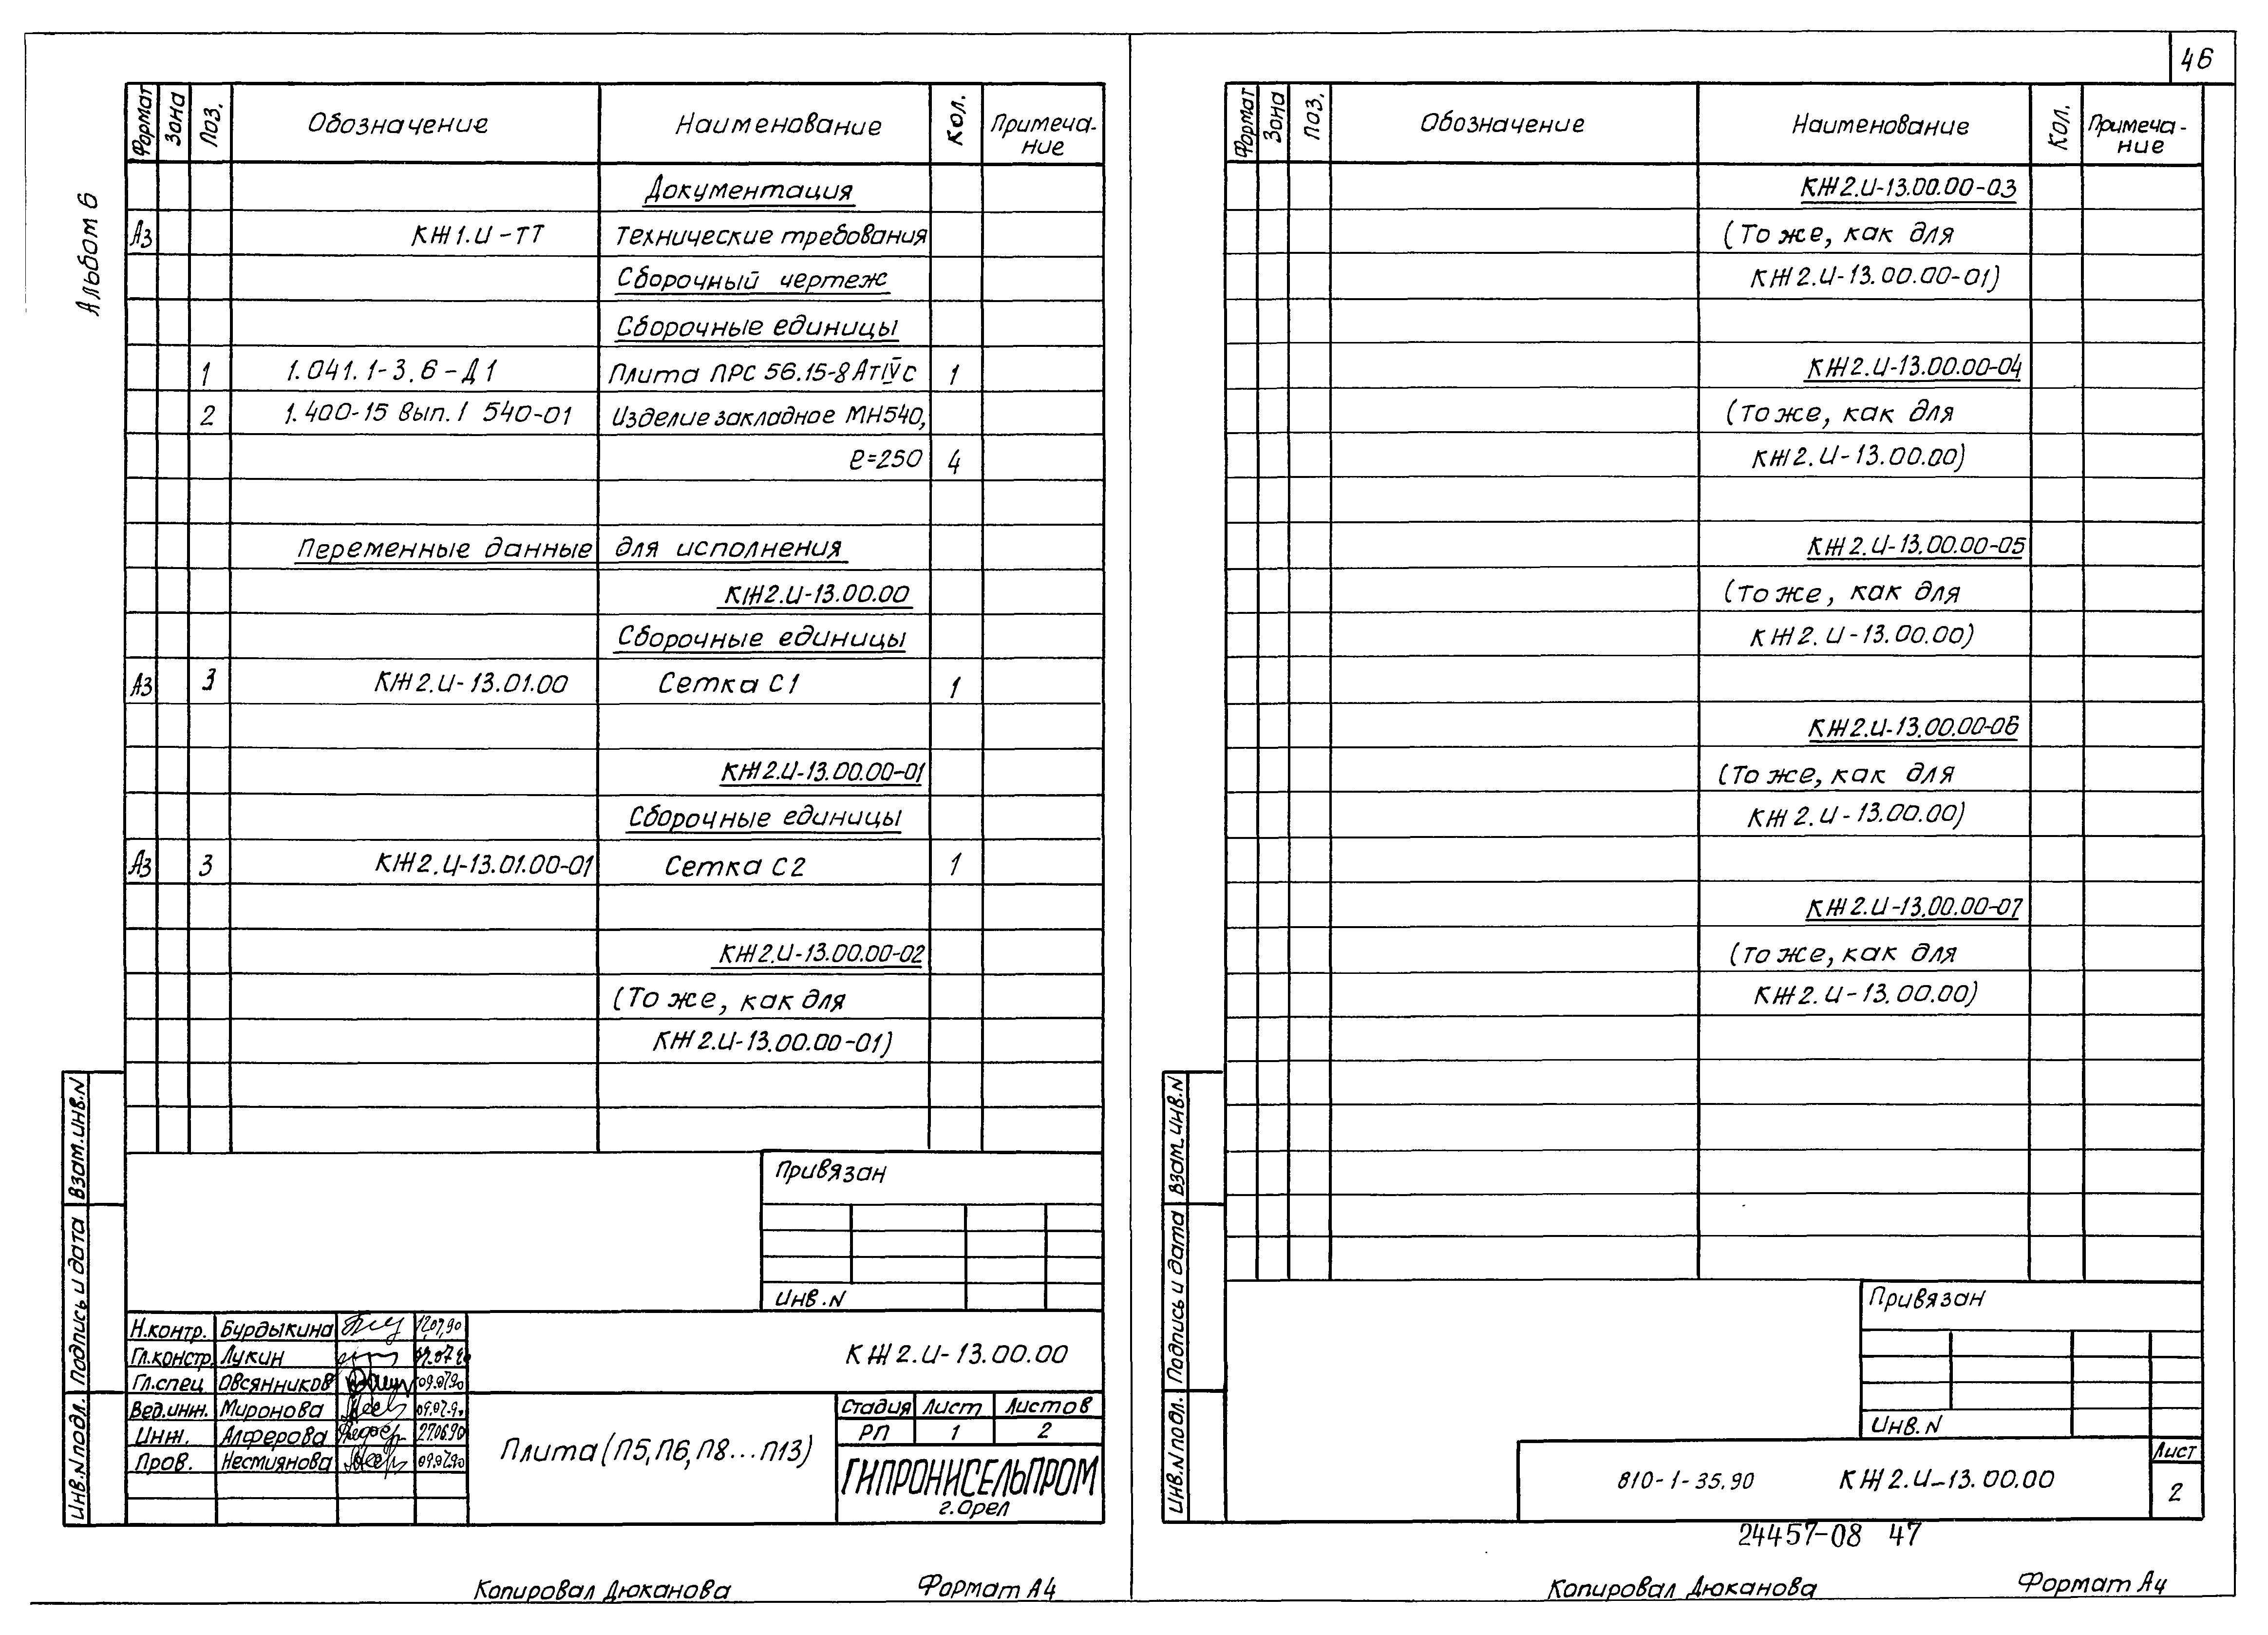 46
Альбом 6
Формат Зона Поз. Обозначение Наименование Кол. Примеча-
ние
Документация
А3 КЖ1.И-ТТ Технические требования
Сборочный чертеж
Сборочные единицы
1 1.041.1-3.6-Д1 Плита ПРС 56.15-8 АтIVс 1
2 1.400-15 Вып.1 540-01 Изделие закладное МН540,
ℓ=250 4
Переменные данные для исполнения
КЖ2.И-13.00.00
Сборочные единицы
А3 3 КЖ2.И-13.01.00 Сетка С1 1
КЖ2.И-13.00.00-01
Сборочные единицы
А3 3 КЖ2.И-13.01.00-01 Сетка С2 1
КЖ2.И-13.00.00-02
(То же, как для
КЖ2.И-13.00.00-01)
Привязан
Инв.N
Взам.инв.N
Подпись и дата
Инв.N подл.
Н.контр. Бурдыкина 12.07.90
Гл.констр. Лукин
Гл.спец Овсянников 09.07.90
Вед.инж. Миронова 09.07.90
Инж. Алферова 27.06.90
Пров. Несмиянова 09.07.90
КЖ2.И-13.00.00
Плита (П5,П6,П8...П13)
Стадия Лист Листов
РП 1 2
ГИПРОНИСЕЛЬПРОМ
г.Орел
Копировал Дюканова Формат А4
Формат Зона Поз. Обозначение Наименование Кол. Примеча-
ние
КЖ2.И-13.00.00-03
(То же, как для
КЖ2.И-13.00.00-01)
КЖ2.И-13.00.00-04
(То же, как для
КЖ2.И-13.00.00)
КЖ2.И-13.00.00-05
(То же, как для
КЖ2.И-13.00.00)
КЖ2.И-13.00.00-06
(То же, как для
КЖ2.И-13.00.00)
КЖ2.И-13.00.00-07
(То же, как для
КЖ2.И-13.00.00)
Привязан
Инв.N
Взам.инв.N
Подпись и дата
Инв.N подл.
810-1-35.90 КЖ2.И-13.00.00
Лист
2
24457-08 47
Копировал Дюканова Формат А4